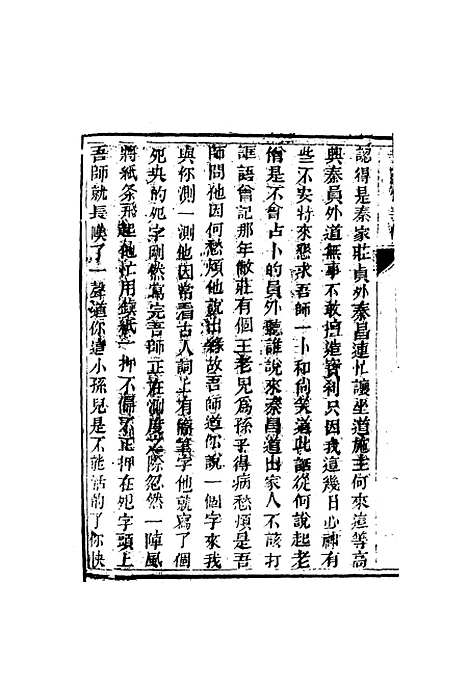 認得是秦家莊員外秦昌連忙讓坐道施主何來這等高
興秦員外道無事不敢擅造寶刹只因我這幾日心神有
些不安特來懇求吾師一卜和尚笑道此話從何說起老
僧是不會占卜的員外聽誰說來秦昌道出家人不該打
誑語曾記那年敝莊有個王老兒爲孫子得病愁煩是吾
師問他因何愁煩他就出緣故吾師道你說一個字來我
與你測一測他因常看古人詞上有簪筆字他就寫了個
死央的死字剛然寫完吾師正在測度之際忽然一陣風
將紙条飛起他忙用鎮紙一押不偏不正押在死字頭上
吾師就長嘆了一聲道你這小孫兒是不能活的了你快